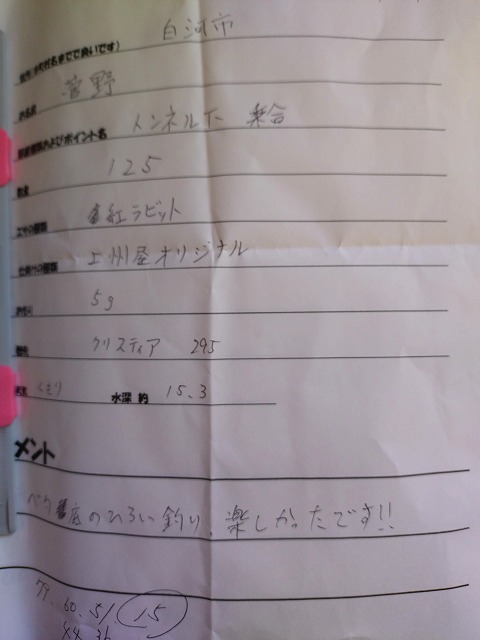 白河市
住所(市町村名までで良いです)
菅野
お名前
トンネル下 乗合
釣座種類およびポイント名
125
数量
紅ラビット
エサの種類
上州屋オリジナル
仕掛けの種類
5g
クリスティア 295
くもり 水深 約 15.3
メント
ベタ底のひろい釣り、楽しかったです!!
79. 60. 51. 15
44 36